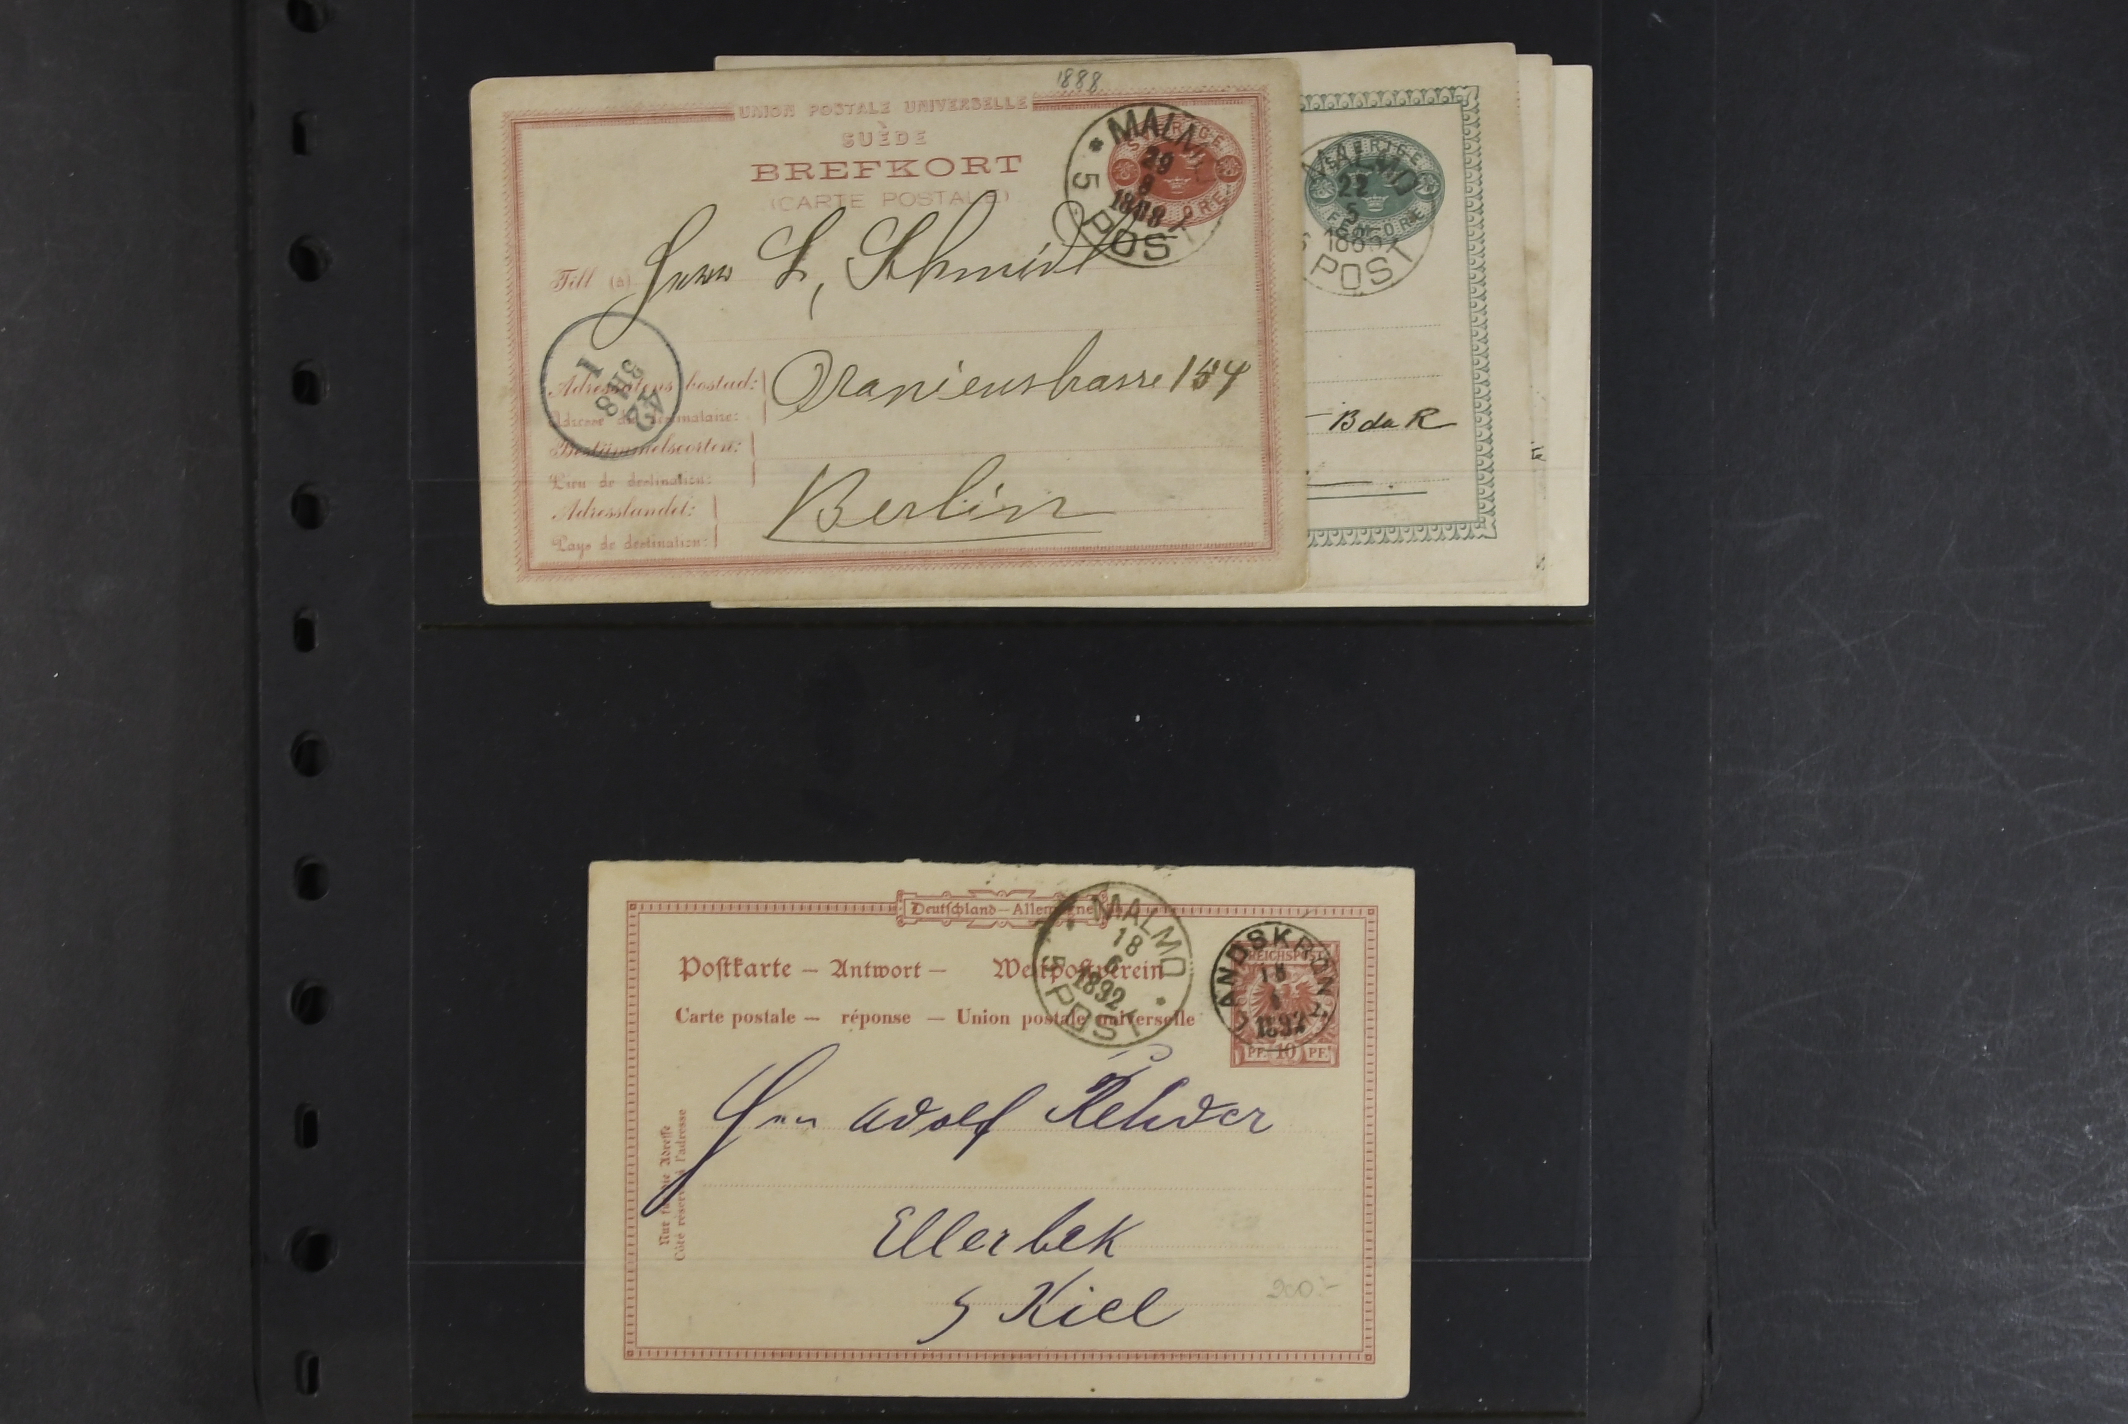 1888
UNION POSTALE UNIVERSELLE
SUÈDE
BREFKORT
(CARTE POSTALE)
MALMÖ
29
8
1888
5 POST
SVERIGE
ÖRE
Till (à)
Herrn L. Schmidt
Adressatens bostad:
Adresse du destinataire:
Oranienstrasse 154
Bestämmelseorten:
Lieu de destination:
Berlin
Adresslandet:
Pays de destination:
MALMÖ
22
5
POST
SVERIGE
FEM ÖRE
B da R
Deutschland – Allemagne
Postkarte – Antwort – Weltpostverein
Carte postale – réponse – Union postale universelle
MALMÖ
18
6
1892
5 POST
LANDSKRONA
18
1892
REICHSPOST
PF. 10 PF.
Nur für die Adresse
Côté réservé à l'adresse
Herrn Adolf Rehder
Ellerbek
Kiel
200:-